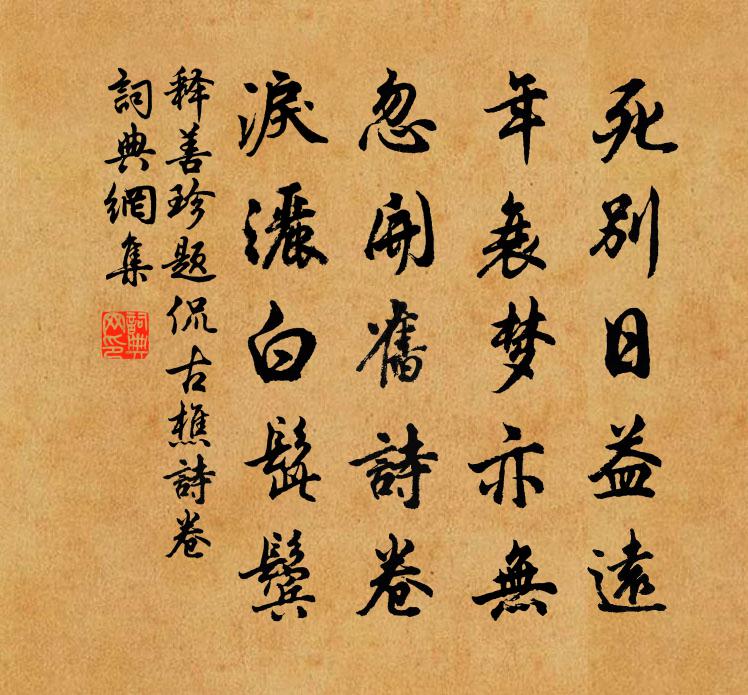 死别日益遠
年衰梦亦無
忽開舊詩卷
淚灑白髭鬓
释善珍题侃古樵詩卷
詞典網集
詞典网印